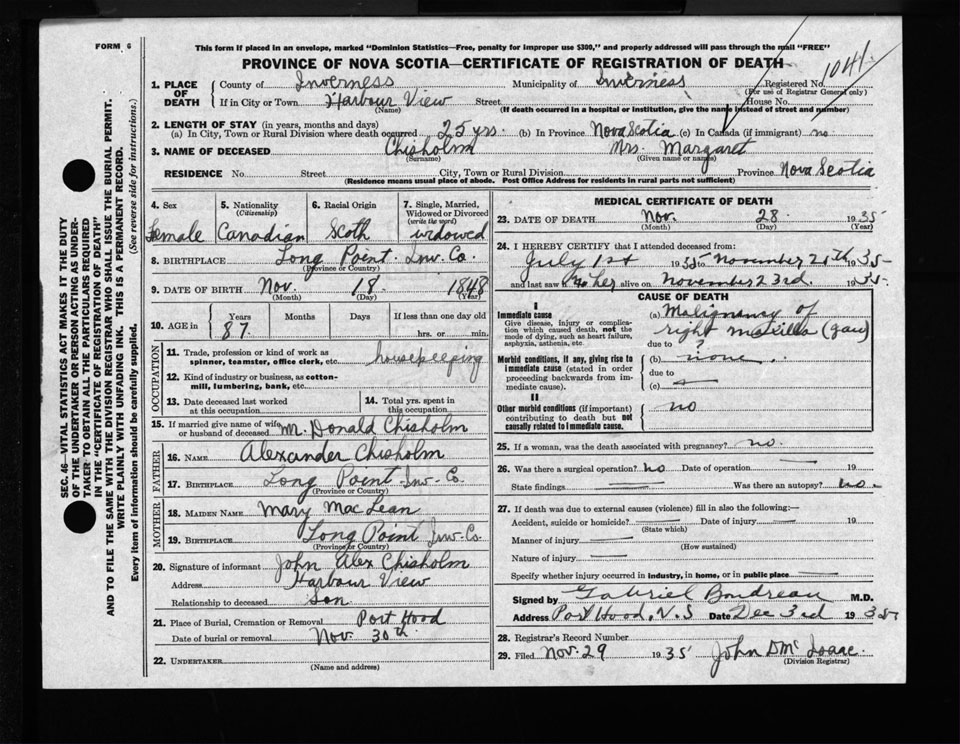 FORM 6
This form if placed in an envelope, marked "Dominion Statistics—Free, penalty for improper use $300," and properly addressed will pass through the mail "FREE"
PROVINCE OF NOVA SCOTIA—CERTIFICATE OF REGISTRATION OF DEATH
1041
1. PLACE OF DEATH County of Inverness Municipality of Inverness Registered No.
(For use of Registrar General only)
If in City or Town Harbour View Street House No.
(Name) (If death occurred in a hospital or institution, give the name instead of street and number)
2. LENGTH OF STAY (in years, months and days)
(a) In City, Town or Rural Division where death occurred 25 yrs. (b) In Province Nova Scotia (c) In Canada (if immigrant) no
3. NAME OF DECEASED Chisholm Mrs. Margaret
(Surname) (Given name or names)
RESIDENCE No. Street City, Town or Rural Division Province Nova Scotia
(Residence means usual place of abode. Post Office Address for residents in rural parts not sufficient)
4. Sex 5. Nationality 6. Racial Origin 7. Single, Married, Widowed or Divorced
(Citizenship) (write the word)
Female Canadian Scoth widowed
8. BIRTHPLACE Long Point Inv. Co.
(Province or Country)
9. DATE OF BIRTH Nov. 18 1848
(Month) (Day) (Year)
10. AGE in Years Months Days If less than one day old
87 hrs. or min.
OCCUPATION
11. Trade, profession or kind of work as spinner, teamster, office clerk, etc. housekeeping
12. Kind of industry or business, as cotton-mill, lumbering, bank, etc.
13. Date deceased last worked at this occupation
14. Total yrs. spent in this occupation
15. If married give name of wife or husband of deceased Mr. Donald Chisholm
FATHER
16. NAME Alexander Chisholm
17. BIRTHPLACE Long Point Inv-Co.
(Province or Country)
MOTHER
18. MAIDEN NAME Mary MacLean
19. BIRTHPLACE Long Point Inv-Co.
(Province or Country)
20. Signature of informant John Alex Chisholm
Address Harbour View
Relationship to deceased Son
21. Place of Burial, Cremation or Removal Port Hood
Date of burial or removal Nov. 30th
22. UNDERTAKER
(Name and address)
MEDICAL CERTIFICATE OF DEATH
23. DATE OF DEATH Nov. 28 1935
(Month) (Day) (Year)
24. I HEREBY CERTIFY that I attended deceased from:
July 1st 1935 to November 28th 1935
and last saw her alive on November 23rd 1935
CAUSE OF DEATH
I
Immediate cause
Give disease, injury or complication which caused death, not the mode of dying, such as heart failure, asphyxia, asthenia, etc.
(a) Malignancy of
right maxilla (jaw)
due to ?
Morbid conditions, if any, giving rise to immediate cause (stated in order proceeding backwards from immediate cause).
(b) none.
due to
(c)
II
Other morbid conditions (if important) contributing to death but not causally related to immediate cause.
no
25. If a woman, was the death associated with pregnancy? no.
26. Was there a surgical operation? no Date of operation 19
State findings Was there an autopsy? no
27. If death was due to external causes (violence) fill in also the following:—
Accident, suicide or homicide? Date of injury 19
(State which)
Manner of injury
(How sustained)
Nature of injury
Specify whether injury occurred in industry, in home, or in public place
Signed by Gabriel Boudreau M.D.
Address Port Hood, N.S Date Dec 3rd 1935
28. Registrar's Record Number
29. Filed Nov. 29 1935 John D McIsaac
(Division Registrar)
SEC. 46—VITAL STATISTICS ACT MAKES IT THE DUTY
OF THE UNDERTAKER OR PERSON ACTING AS UNDER-
TAKER TO OBTAIN ALL THE PARTICULARS REQUIRED
IN THE "CERTIFICATE OF REGISTRATION OF DEATH"
AND TO FILE THE SAME WITH THE DIVISION REGISTRAR WHO SHALL ISSUE THE BURIAL PERMIT.
WRITE PLAINLY WITH UNFADING INK. THIS IS A PERMANENT RECORD.
Every item of information should be carefully supplied. (See reverse side for instructions.)